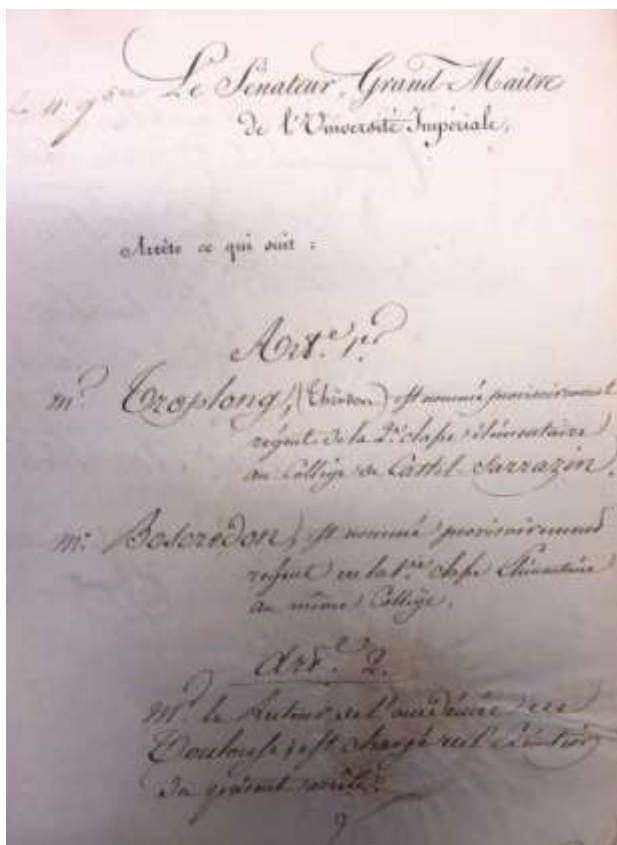 Le Sénateur, Grand-Maître
Le 11 9bre
de l'Université Impériale,
Arrête ce qui suit :
Art.e 1.er
Mr Troplong, (Thirdon) est nommé provisoirement
régent de la 2e classe élémentaire
au Collège de Castel-Sarrazin.
Mr Boscredon, est nommé provisoirement
régent en la 1.re classe Élémentaire
au même Collège.
Art.e 2.
Mr le Recteur de l'académie de
Toulouse, est chargé de l'exécution
du présent arrêté.